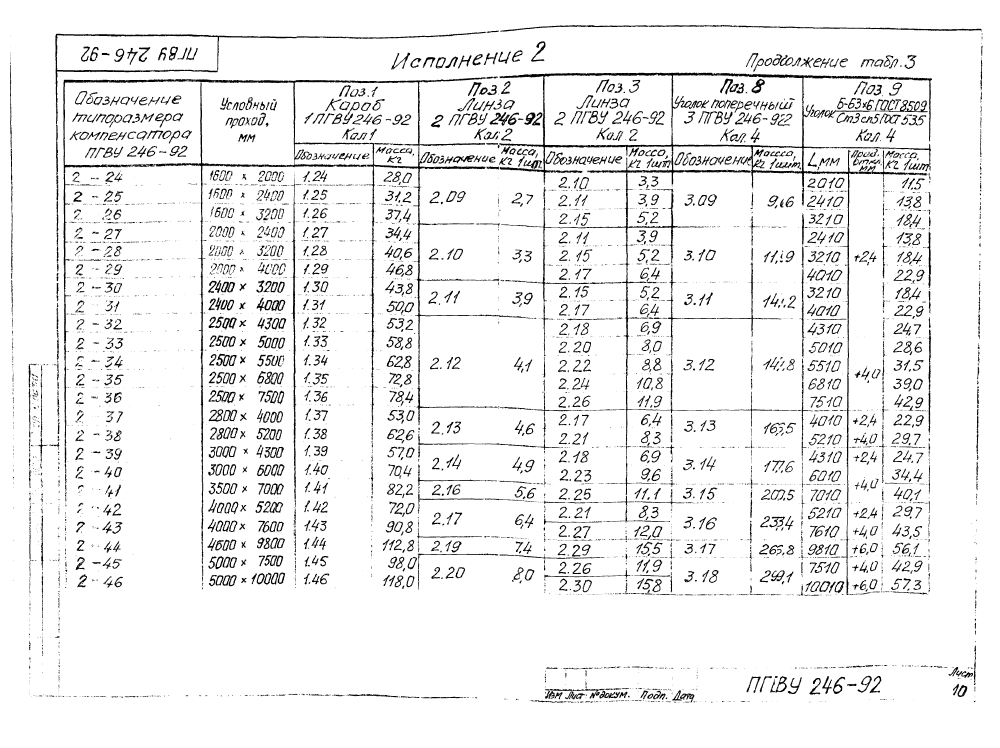 ПГВУ 246-92
Исполнение 2
Продолжение табл. 3
Обозначение типоразмера компенсатора ПГВУ 246-92
Условный проход, мм
Поз. 1 Короб 1 ПГВУ 246-92 Кол 1
Поз 2 Линза 2 ПГВУ 246-92 Кол. 2
Поз. 3 Линза 2 ПГВУ 246-92 Кол. 2
Поз. 8 Уголок поперечный 3 ПГВУ 246-922 Кол. 4
Поз 9 Уголок Б-63х6 ГОСТ 8509 Ст3сп5 ГОСТ 535 Кол. 4
Обозначение Масса, кг Обозначение Масса, кг 1шт Обозначение Масса, кг 1шт Обозначение Масса, кг 1шт L, мм Пред. откл. мм Масса, кг 1шт
2 - 24 1600 x 2000 1.24 28,0 2.10 3,3 2010 11,5
2 - 25 1600 x 2400 1.25 31,2 2.09 2,7 2.11 3,9 3.09 2410 13,8
2 - 26 1600 x 3200 1.26 37,4 2.15 5,2 3210 18,4
2 - 27 2000 x 2400 1.27 34,4 2.11 3,9 2410 13,8
2 - 28 2000 x 3200 1.28 40,6 2.10 3,3 2.15 5,2 3.10 3210 +2,4 18,4
2 - 29 2000 x 4000 1.29 46,8 2.17 6,4 4010 22,9
2 - 30 2400 x 3200 1.30 43,8 2.11 3,9 2.15 5,2 3.11 3210 18,4
2 31 2400 x 4000 1.31 50,0 2.17 6,4 4010 22,9
2 - 32 2500 x 4300 1.32 53,2 2.18 6,9 4310 24,7
2 - 33 2500 x 5000 1.33 58,8 2.20 8,0 5010 28,6
2 - 34 2500 x 5500 1.34 62,8 2.12 4,1 2.22 8,8 3.12 5510 +4,0 31,5
2 - 35 2500 x 6800 1.35 72,8 2.24 10,8 6810 39,0
2 - 36 2500 x 7500 1.36 78,4 2.26 11,9 7510 42,9
2 37 2800 x 4000 1.37 53,0 2.13 4,6 2.17 6,4 3.13 4010 +2,4 22,9
2 - 38 2800 x 5200 1.38 62,6 2.21 8,3 5210 +4,0 29,7
2 - 39 3000 x 4300 1.39 57,0 2.14 4,9 2.18 6,9 3.14 4310 +2,4 24,7
2 - 40 3000 x 6000 1.40 70,4 2.23 9,6 6010 +4,0 34,4
2 - 41 3500 x 7000 1.41 82,2 2.16 5,6 2.25 11,1 3.15 7010 40,1
2 - 42 4000 x 5200 1.42 72,0 2.17 6,4 2.21 8,3 3.16 5210 +2,4 29,7
2 - 43 4000 x 7600 1.43 90,8 2.27 12,0 7610 +4,0 43,5
2 - 44 4600 x 9800 1.44 112,8 2.19 7,4 2.29 15,5 3.17 9810 +6,0 56,1
2 - 45 5000 x 7500 1.45 98,0 2.20 8,0 2.26 11,9 3.18 7510 +4,0 42,9
2 - 46 5000 x 10000 1.46 118,0 2.30 15,8 10010 +6,0 57,3
Изм Лист № докум. Подп. Дата
ПГВУ 246-92
Лист 10